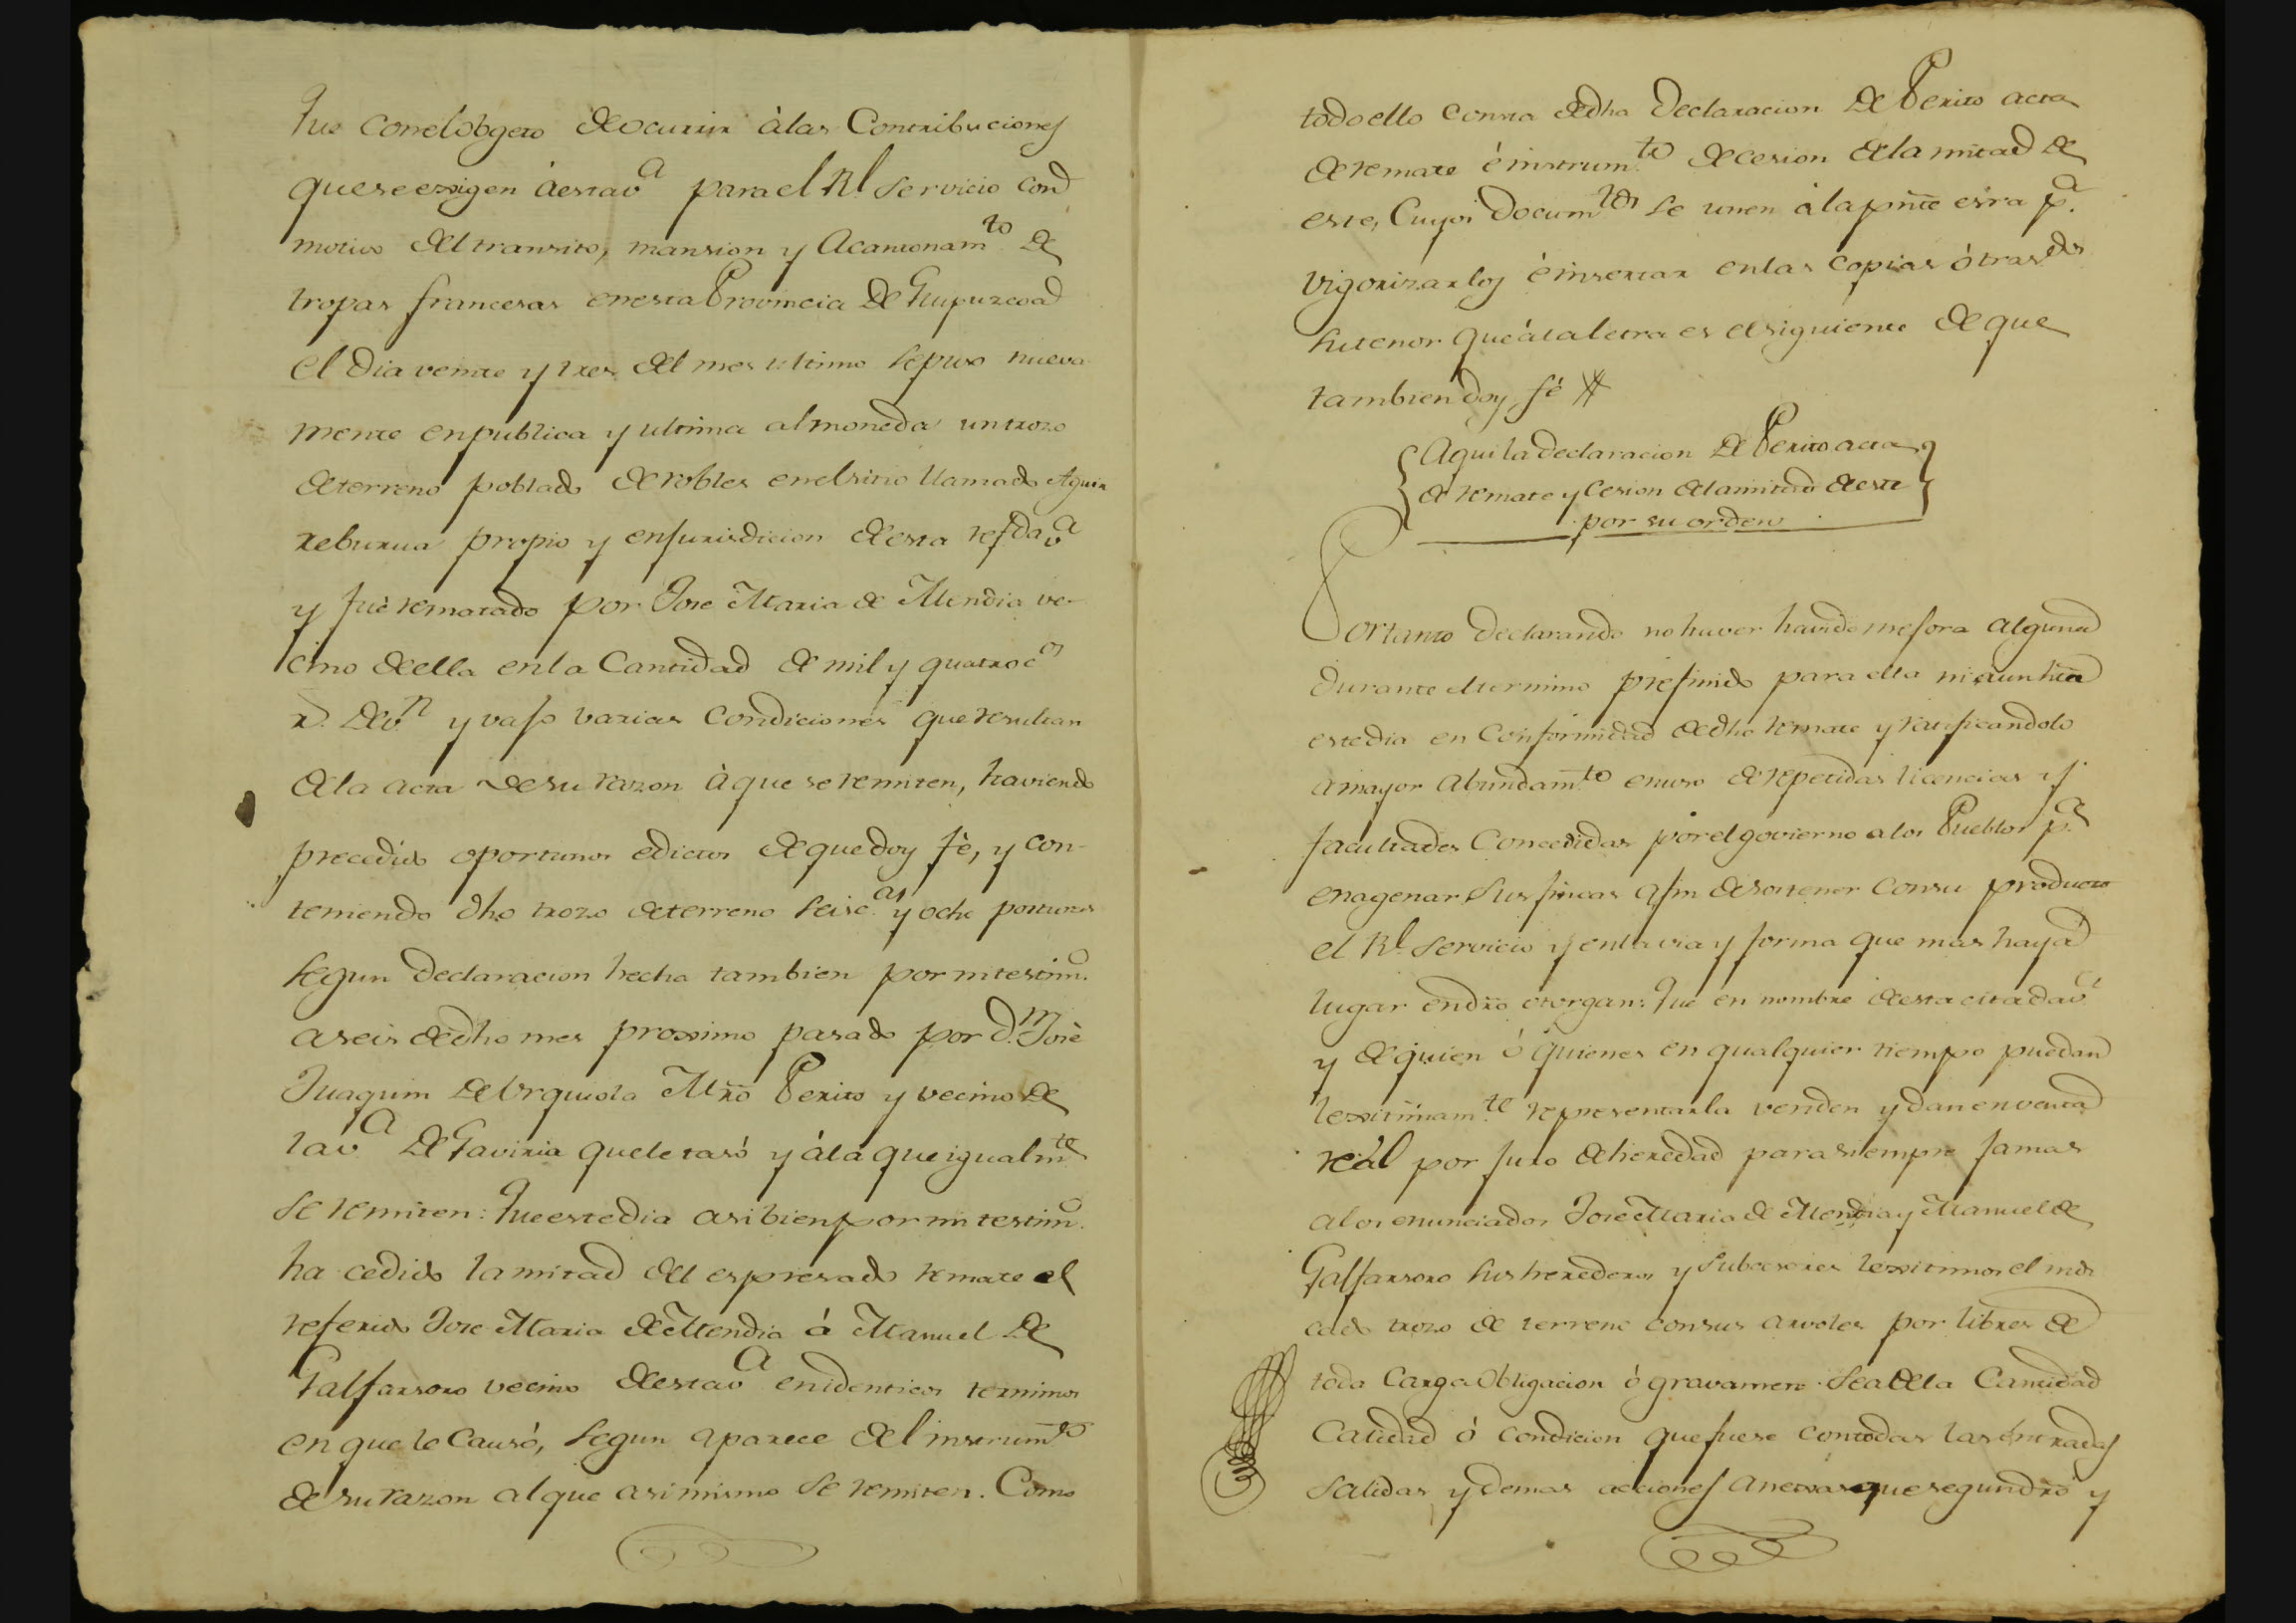 Que con el obgeto de ocurrir à las Contribuciones
que se exigen à esta v.ª para el Rl. Servicio con
motivo del transito, mansion y Acantonam.to de
tropas francesas en esta Provincia de Guipuzcoa
el dia veinte y tres del mes ultimo se puso nueva
mente en publica y ultima almoneda un trozo
de terreno poblado de robles en el sitio llamado Aguir
reburua propio y en jurisdicion de esta refda v.ª
y fuè rematado por Jose Maria de Mendia ve-
cino de ella en la Cantidad de mil y quatroc.os
r.s de v.n y vajo varias condiciones que resultan
de la acta de su razon à que se remiten, haviendo
precedido oportunos edictos de que doy fè, y con-
teniendo dho trozo de terreno seisc.as y ocho posturas
segun declaracion hecha tambien por mi testim.o
a seis de dho mes proximo pasado por D.n Josè
Juaquin de Urquiola Mrõ Perito y vecino de
la v.ª de Gaviria que le tasó y á la que igualm.te
se remiten: Que este dia asi bien por mi testim.o
ha cedido la mitad del espresado remate el
referido Jose Maria de Mendia á Manuel de
Galfarsoro vecino de esta v.ª en identicos terminos
en que le Causó, segun aparece del instrum.to
de su razon al que asi mismo se remiten. Como
todo ello consta de dha Declaracion de Perito acta
de remate é instrum.to de cesion de la mitad de
este, Cuyos Docum.tos se unen á la pñte esrã p.ª
vigorizarlos é insertar en las copias ó trasdos
su tenor que á la letra es el siguiente de que
tambien doy fé #
Aqui la declaracion de Perito acta
de remate y Cesion de la mitad de este
por su orden
Portanto declarando no haver havido mejora alguna
durante el termino prefinido para ella ni aun hta
este dia en Conformidad de dho remate y ratificandolo
a mayor abundam.to en uso de repetidas licencias y
facultades Concedidas por el govierno a los Pueblos p.ª
enagenar sus fincas a fin de sostener con su producto
el Rl. Servicio y en la via y forma que mas haya
lugar en drõ otorgan: Que en nombre de esta citada v.ª
y de quien ó quienes en qualquier tiempo puedan
lexitimam.te representarla venden y dan en venta
reál por juro de heredad para siempre jamas
a los enunciados Jose Maria de Mendia y Manuel de
Galfarsoro sus herederos y subcesores lexitimos el indi
cado trozo de terreno con sus arvoles por libres de
toda Carga Obligacion ó gravamen sea de la Cantidad
Calidad ó condicion que fuese con todas las entradas
salidas y demas acciones anexas que segun drõ y